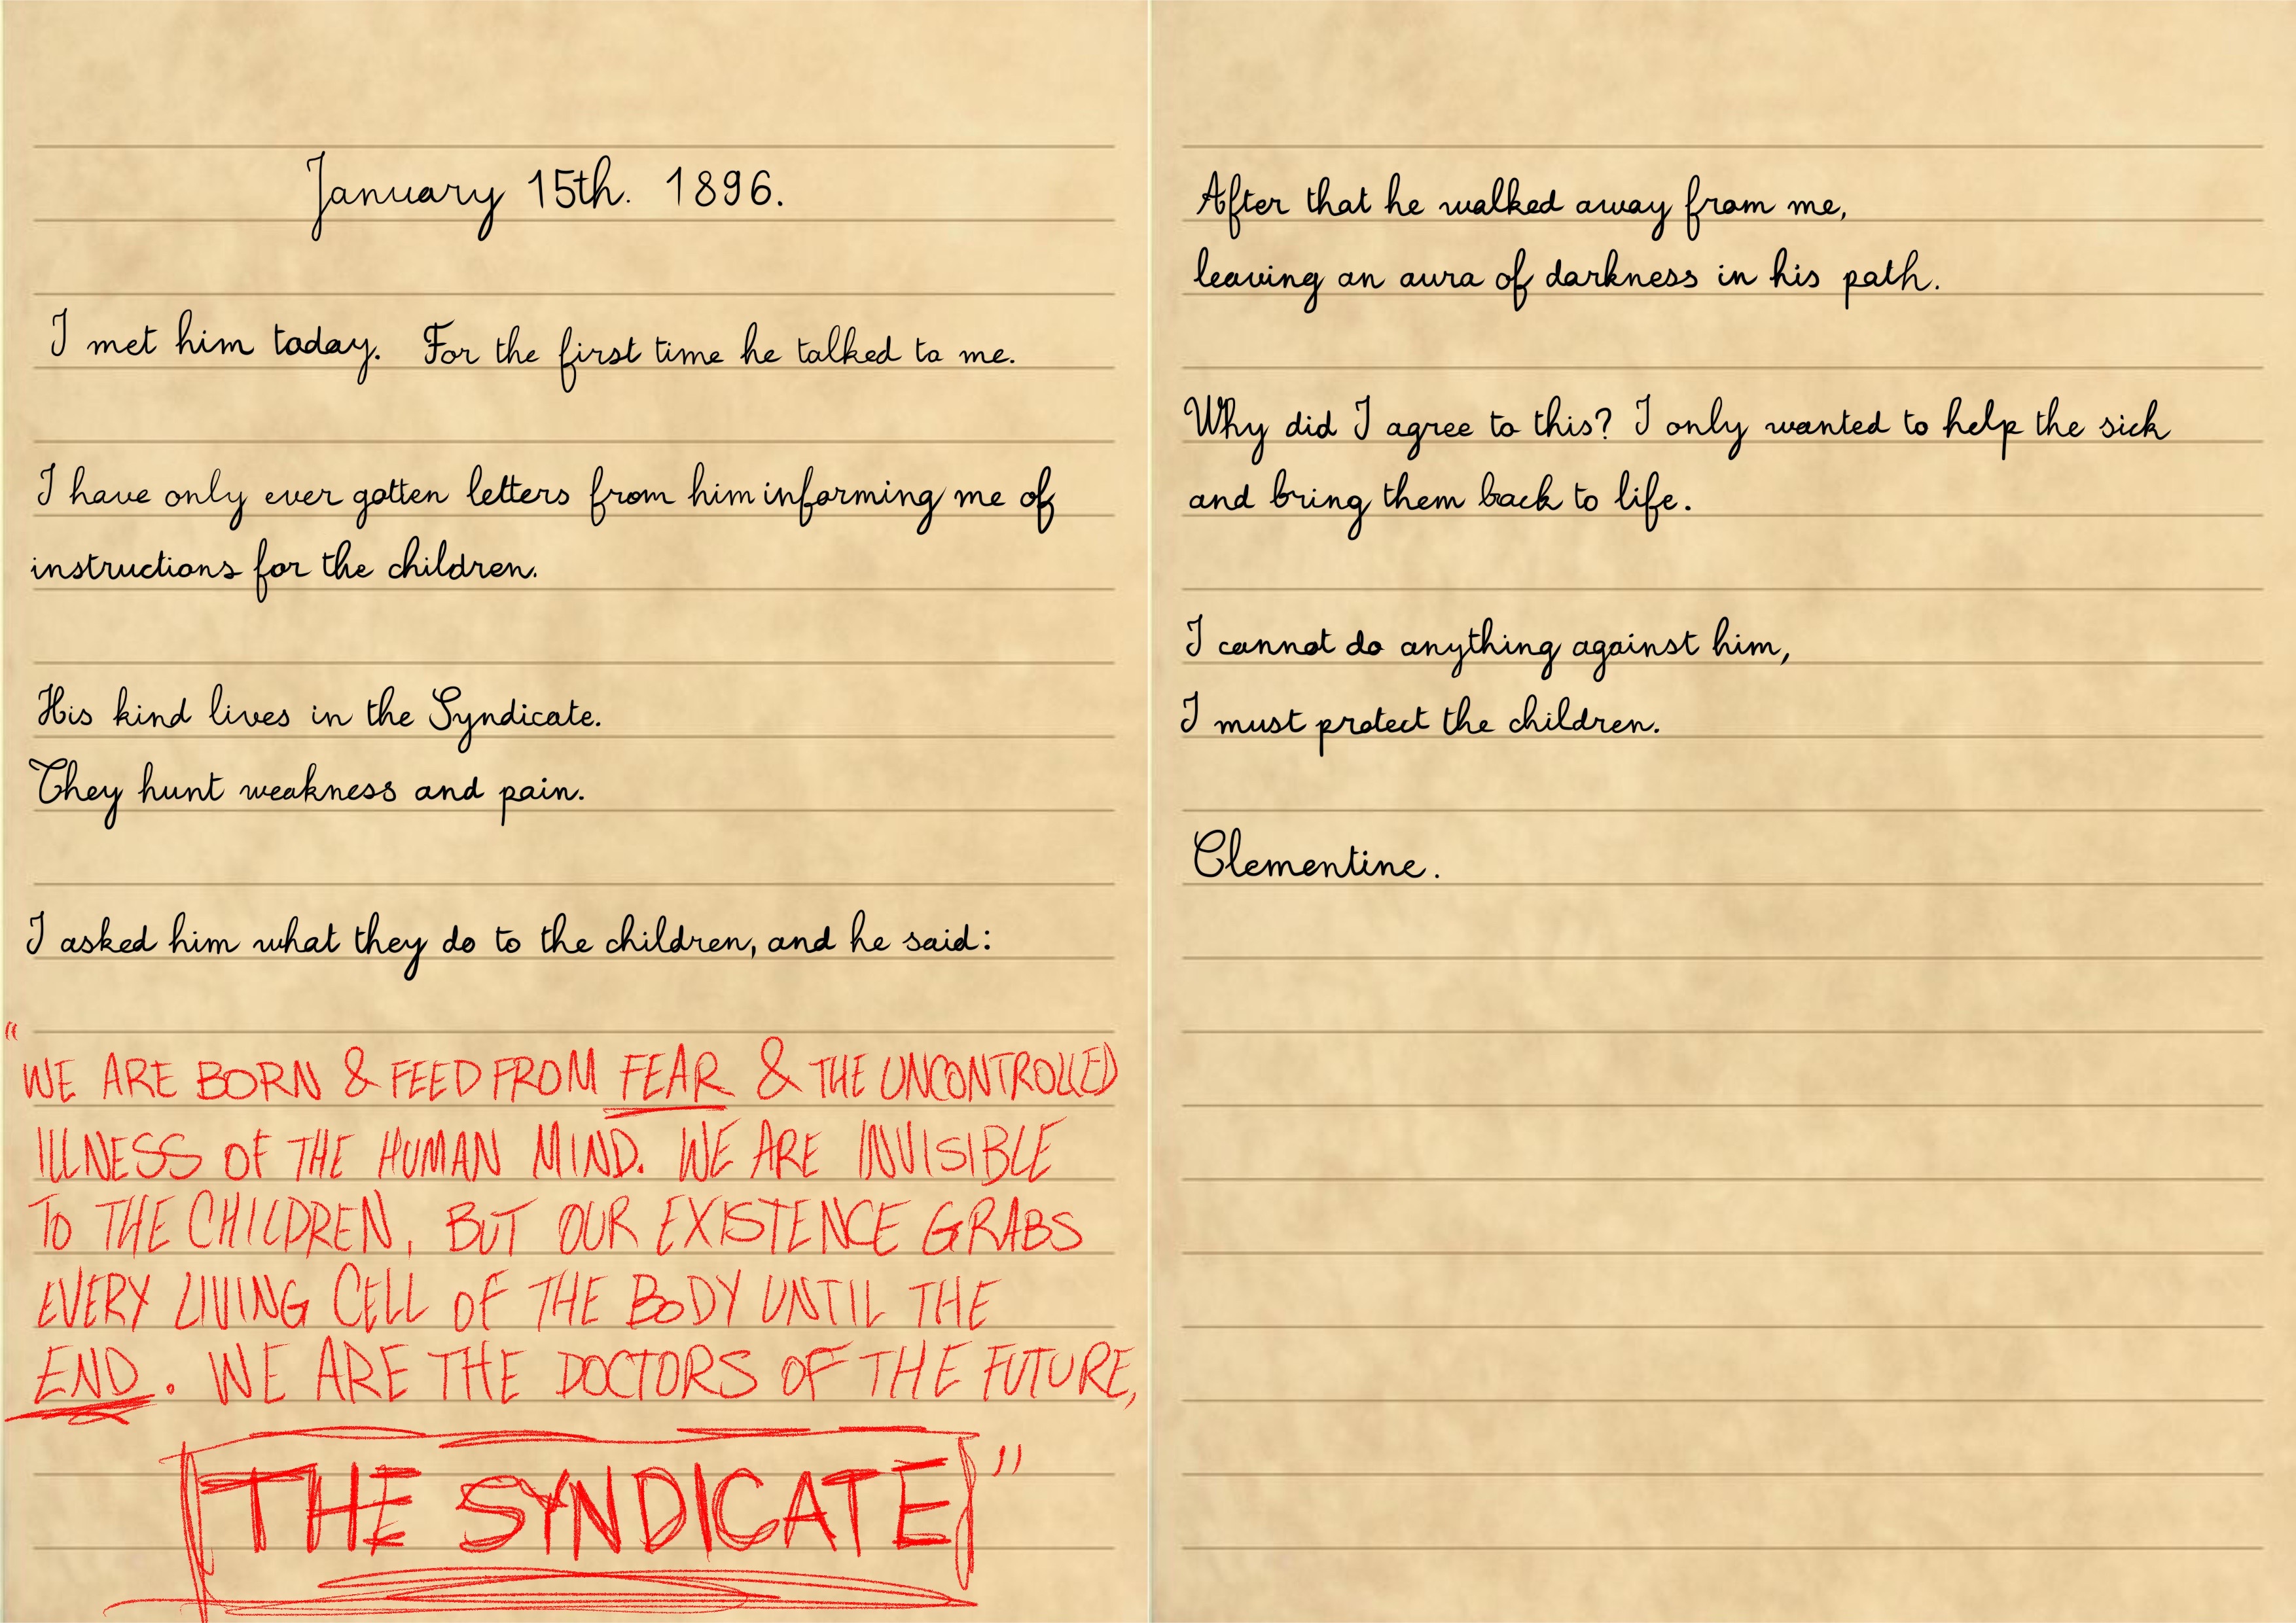 January 15th. 1896.
I met him today. For the first time he talked to me.
I have only ever gotten letters from him informing me of
instructions for the children.
His kind lives in the Syndicate.
They hunt weakness and pain.
I asked him what they do to the children, and he said:
"WE ARE BORN & FEED FROM FEAR & THE UNCONTROLLED
ILLNESS OF THE HUMAN MIND. WE ARE INVISIBLE
TO THE CHILDREN, BUT OUR EXISTENCE GRABS
EVERY LIVING CELL OF THE BODY UNTIL THE
END. WE ARE THE DOCTORS OF THE FUTURE,
THE SYNDICATE"
After that he walked away from me,
leaving an aura of darkness in his path.
Why did I agree to this? I only wanted to help the sick
and bring them back to life.
I cannot do anything against him,
I must protect the children.
Clementine.